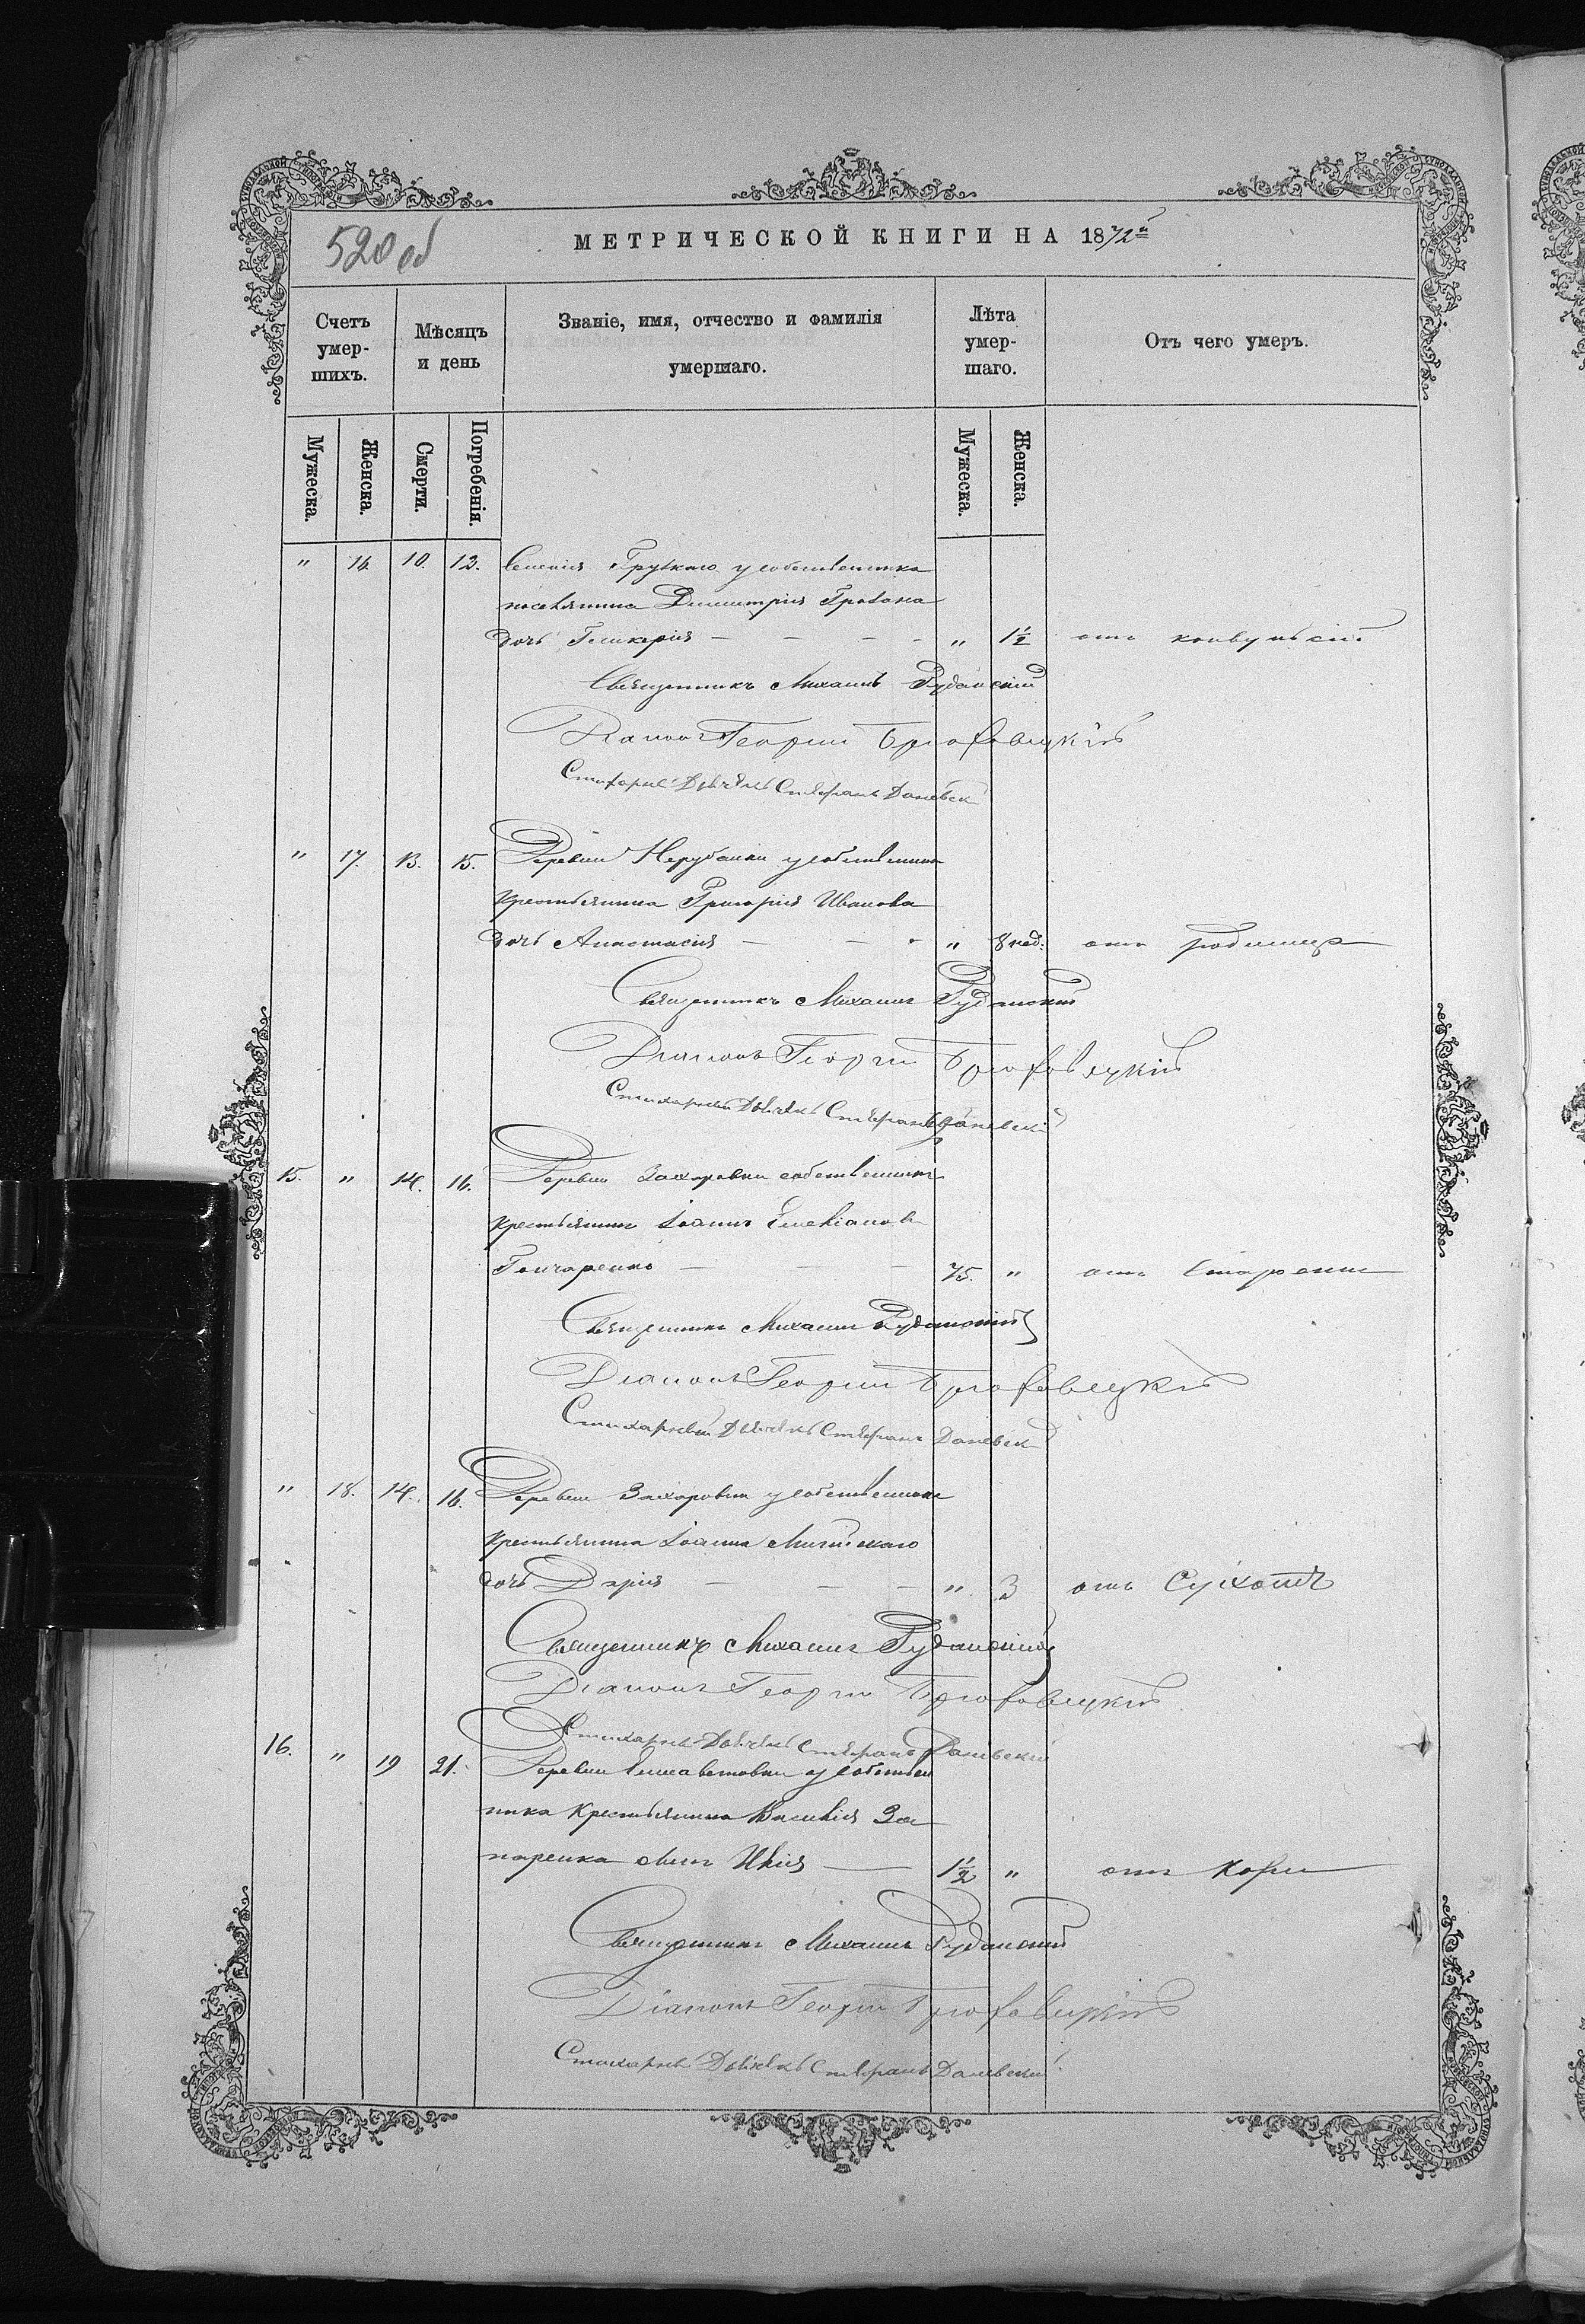 520 об
МЕТРИЧЕСКОЙ КНИГИ НА 1872й
Счетъ умер-шихъ.
Мѣсяцъ и день
Званіе, имя, отчество и фамилія умершаго.
Лѣта умер-шаго.
Отъ чего умеръ.
Мужеска.
Женска.
Смерти.
Погребенія.
Мужеска.
Женска.
" 16. 10. 12. Селенія Грузкаго у собственника
поселянина Димитрія
дочь Гликерія — — — " 1½ отъ конвульсій
Священникъ Михаилъ Руданскій
Діаконъ Георгій Брюховецкій
Стихарный Дьячекъ Стефанъ Даневск
" 17. 13. 15. Деревни Нерубайки у собственника
крестьянина Григорія Иванова
дочь Анастасія — — " 8 нед. отъ родимца
Священникъ Михаилъ Руданскій
Діаконъ Георгій Брюховецкій
Стихарный Дьячекъ Стефанъ Даневскій
15. " 14. 16. Деревни Захаровки собственникъ
крестьянинъ Іоаннъ Емеліановъ
Гончаренко — — — 75. " отъ Старости
Священникъ Михаилъ Руданскій
Діаконъ Георгій Брюховецкій
Стихарный Дьячекъ Стефанъ Даневск
" 18. 14. 16. Деревни Захаровки у собственника
крестьянина Іоанна
дочь Дарія — — — " 3 отъ Сухотъ
Священникъ Михаилъ Руданскій
Діаконъ Георгій Брюховецкій
Стихарный Дьячекъ Стефанъ Даневскій
16. " 19 21. Деревни Елисаветовки у собствен
ника крестьянина Василія За
паренка сынъ Илія — 1½ " отъ Кори
Священникъ Михаилъ Руданскій
Діаконъ Георгій Брюховецкій
Стихарный Дьячекъ Стефанъ Даневскій